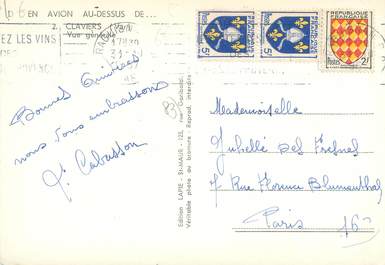 EN AVION AU-DESSUS DE...
2. CLAVIERS (Var)
Vue générale
EZ LES VINS
Bonnes Amitiés
nous vous embrassons
Cabasson
Edition LAPIE - St-MAUR - 225, rue Garibaldi
Véritable photo au bromure - Reprod. interdite
REPUBLIQUE FRANÇAISE
POSTES 2F
5F
5F
Mademoiselle
des Fresnes
7 Rue Florence Blumenthal
Paris 16e